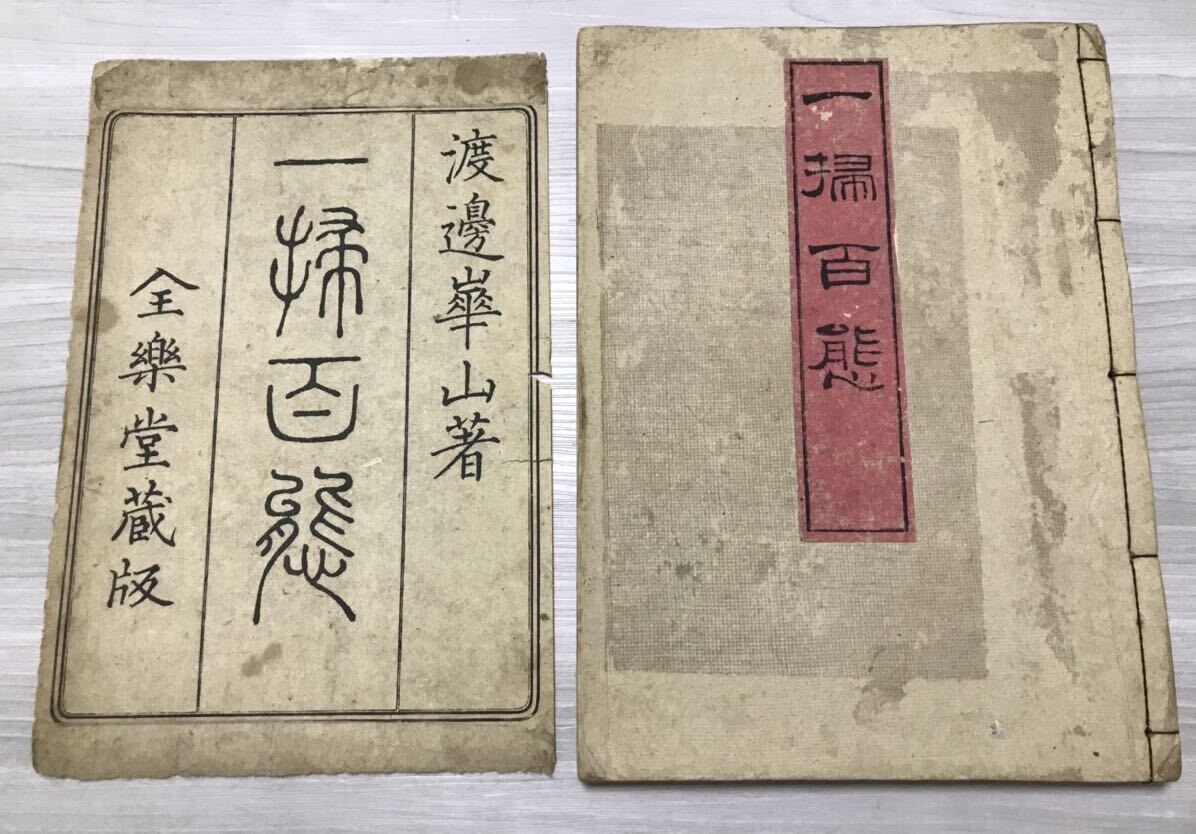 渡邊崋山著
一掃百態
全樂堂蔵版
一掃百態